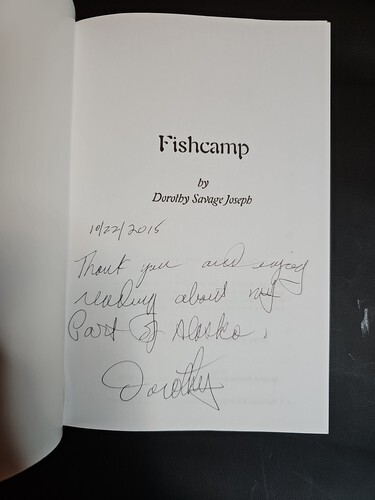 Fishcamp
by
Dorothy Savage Joseph
10/22/2015
Thank you and enjoy
reading about my
Part of Alaska.
Dorothy